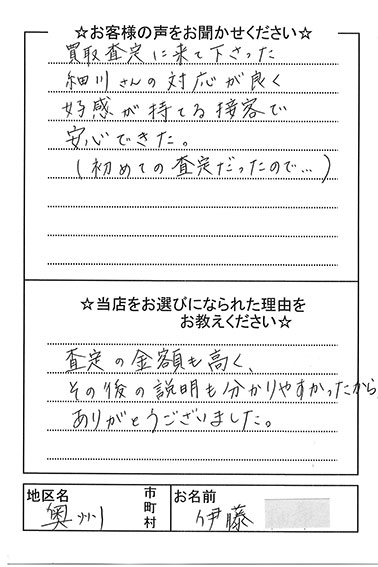 ☆お客様の声をお聞かせください☆
買取査定に来て下さった
細川さんの対応が良く
好感が持てる接客で
安心できた。
(初めての査定だったので…)
☆当店をお選びになられた理由を
お教えください☆
査定の金額も高く、
その後の説明も分かりやすかったから
ありがとうございました。
地区名 奥州 市町村 お名前 伊藤